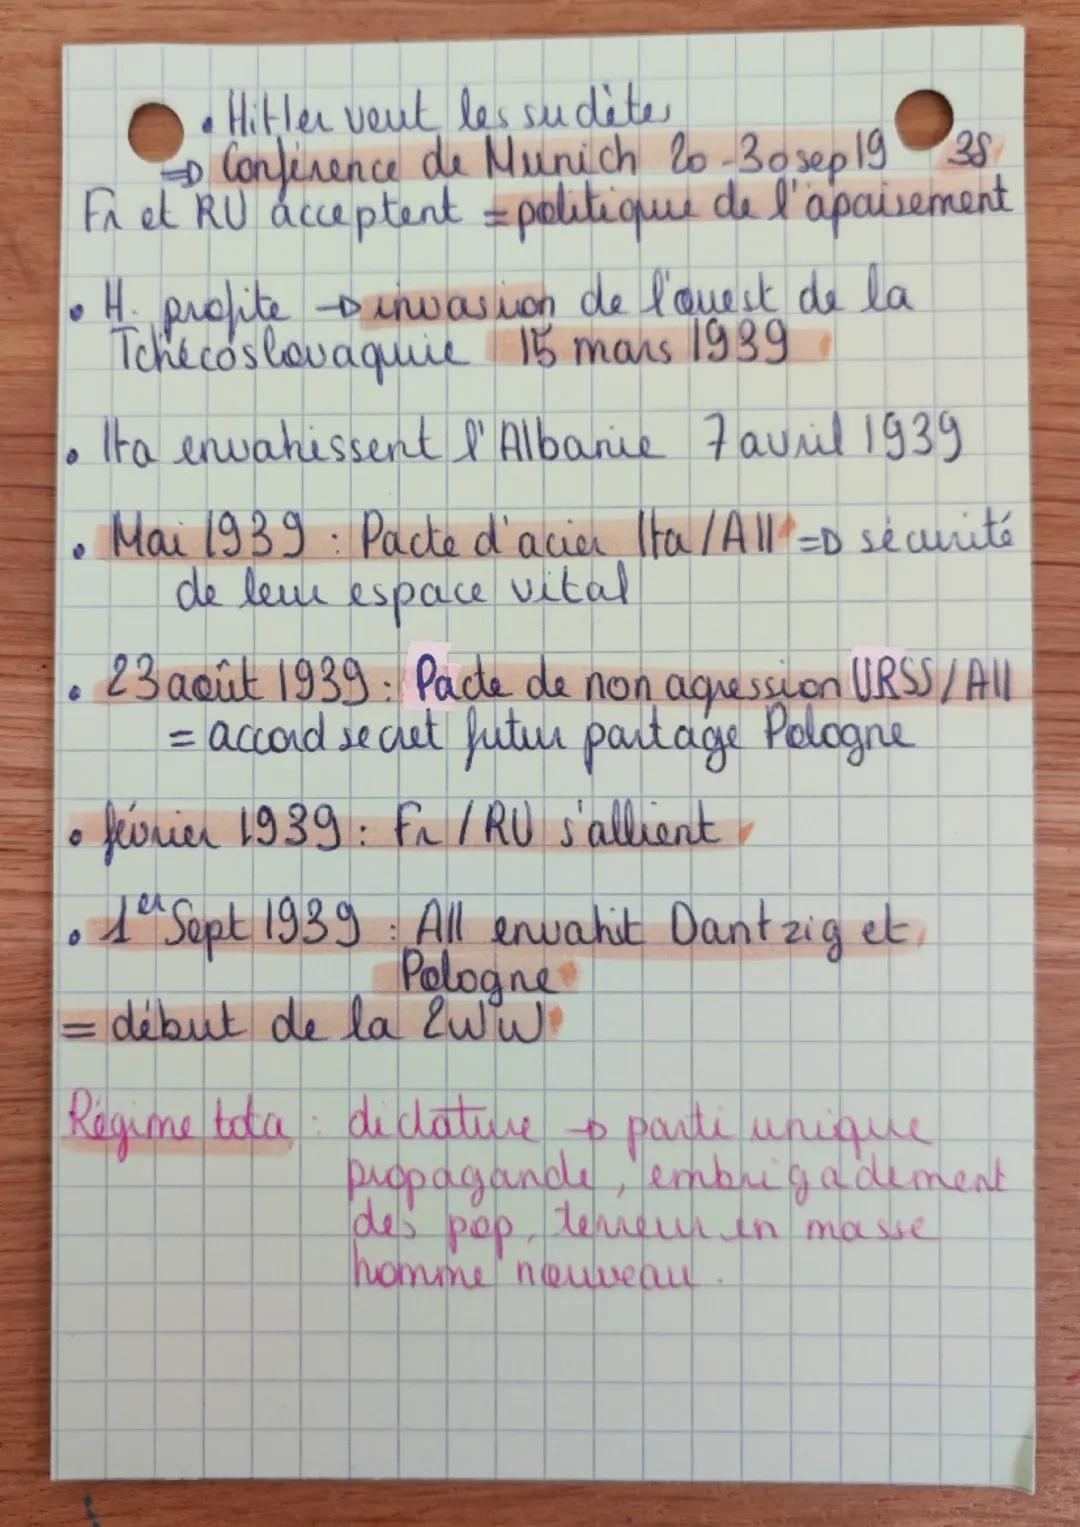 • Hitler veut les sudètes
⇒ Conférence de Munich 20-30 sep 19 38
Fr et RU acceptent = politique de l'apaisement
• H. profite → invasion de l'ouest de la
Tchécoslovaquie 15 mars 1939
• Ita envahissent l'Albanie 7 avril 1939
• Mai 1939 : Pacte d'acier Ita/All ⇒ sécurité
de leur espace vital
• 23 août 1939 : Pacte de non agression URSS/All
= accord secret futur partage Pologne
• février 1939 : Fr/RU s'allient
• 1er Sept 1939 : All envahit Dantzig et
Pologne
= début de la 2WW
Régime tota : dictature → parti unique
propagande, embrigadement
des pop, terreur en masse
homme nouveau.